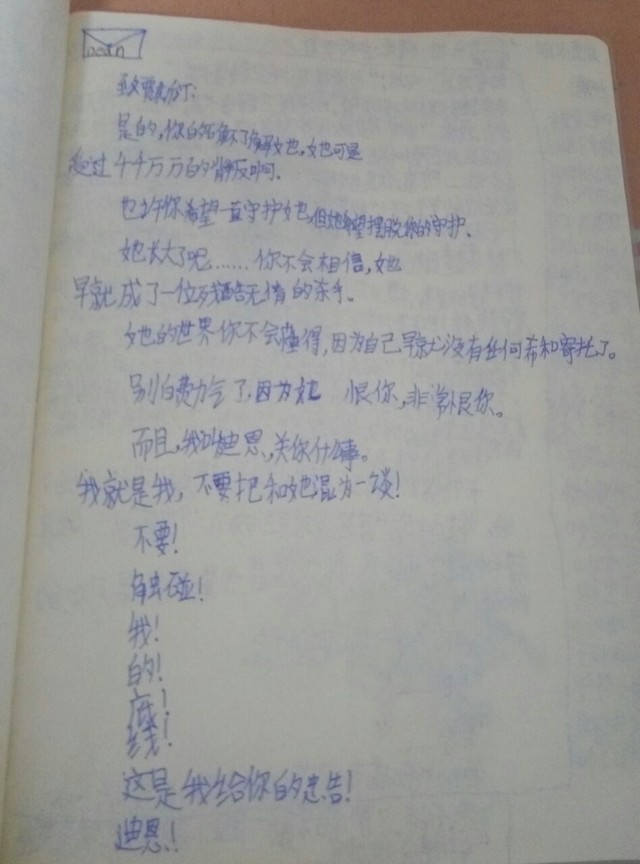 dean
是的,你的确不了解她也,她也可是
超过千千万万的背反啊.
也许你希望一直守护她,但她希望摆脱你的守护.
她长大了呢……你不会相信,她
早就成了一位残酷无情的杀手。
她的世界你不会懂得,因为自己早就没有任何希和寄托了。
别白费力气了,因为她 恨你,非常恨你。
而且,我叫迪恩,关你什么事。
我就是我,不要把和她混为一谈!
不要!
触碰!
我!
的!
底!
线!
这是我给你的忠告!
迪恩!